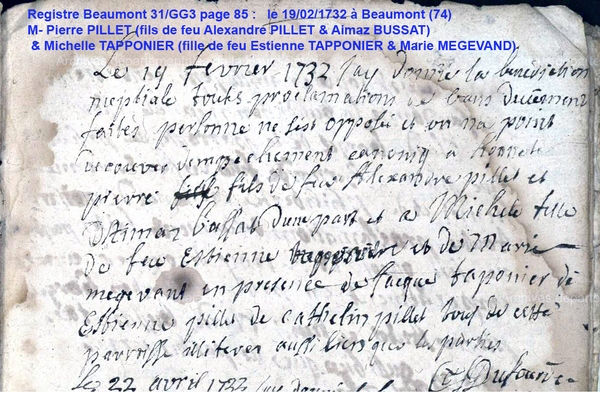 Registre Beaumont 31/GG3 page 85 : le 19/02/1732 à Beaumont (74)
M- Pierre PILLET (fils de feu Alexandre PILLET & Aimaz BUSSAT)
& Michelle TAPPONIER (fille de feu Estienne TAPPONIER & Marie MEGEVAND)
Le 19 fevrier 1732 jay donné la benediction
nuptiale touts proclamations de bans duement
faites personne ne sest opposé et on na point
decouvert dempechement canoniq a honnete
pierre fils de feu Alexandre pillet et
bussat dune part et a Michele fille
de feu Estienne tapponier et de Marie
megevant en presence de Jacque taponier de
Estienne pillet de cathelin pillet tous de cette
parroisse illiterez aussi bien que les parties
Le 22 avril 1732 jay donné la
Dufour